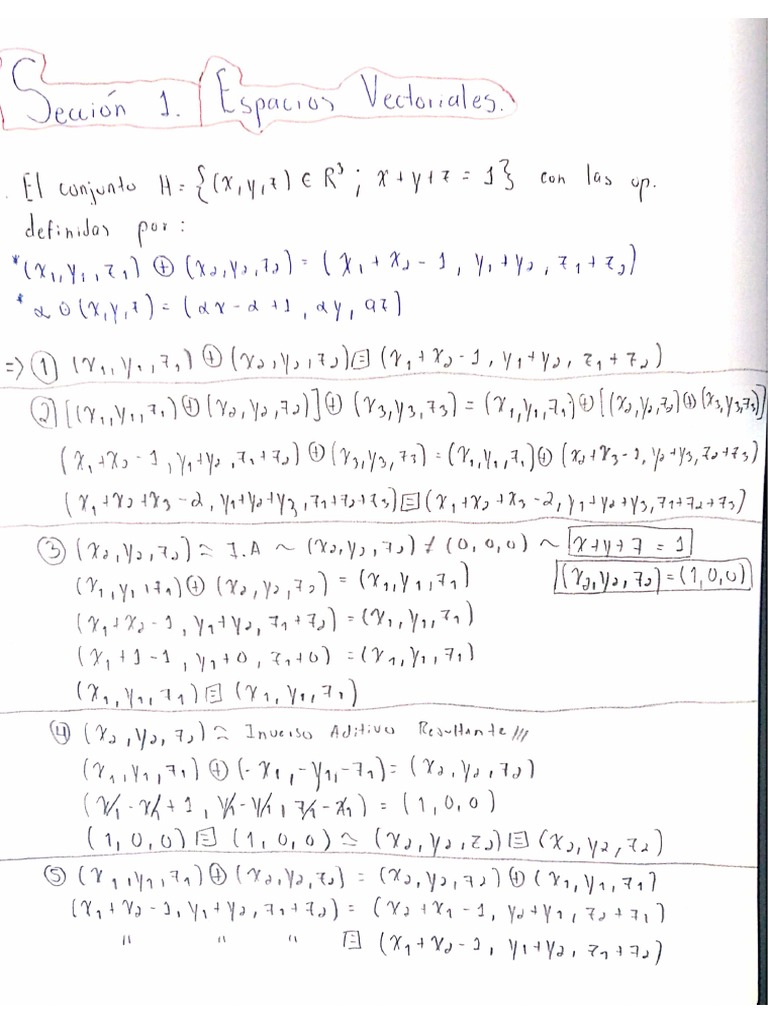 Sección 1. Espacios Vectoriales.
. El conjunto H = {(x,y,z) ∈ R³ ; x+y+z = 1} con las op.
definidas por:
*(x₁,y₁,z₁) ⊕ (x₂,y₂,z₂) = (x₁+x₂-1, y₁+y₂, z₁+z₂)
* α⊙(x,y,z) = (αx-α+1, αy, αz)
=> ① (x₁,y₁,z₁) ⊕ (x₂,y₂,z₂) ≡ (x₁+x₂-1, y₁+y₂, z₁+z₂)
② [(x₁,y₁,z₁)⊕(x₂,y₂,z₂)]⊕(x₃,y₃,z₃) = (x₁,y₁,z₁)⊕[(x₂,y₂,z₂)⊕(x₃,y₃,z₃)]
(x₁+x₂-1, y₁+y₂, z₁+z₂)⊕(x₃,y₃,z₃) = (x₁,y₁,z₁)⊕(x₂+x₃-1, y₂+y₃, z₂+z₃)
(x₁+x₂+x₃-2, y₁+y₂+y₃, z₁+z₂+z₃) ≡ (x₁+x₂+x₃-2, y₁+y₂+y₃, z₁+z₂+z₃)
③ (x₂,y₂,z₂) ≈ I.A ~ (x₂,y₂,z₂) ≠ (0,0,0) ~ x+y+z = 1
(x₁,y₁,z₁)⊕(x₂,y₂,z₂) = (x₁,y₁,z₁) (x₂,y₂,z₂) = (1,0,0)
(x₁+x₂-1, y₁+y₂, z₁+z₂) = (x₁,y₁,z₁)
(x₁+1-1, y₁+0, z₁+0) = (x₁,y₁,z₁)
(x₁,y₁,z₁) ≡ (x₁,y₁,z₁)
④ (x₂,y₂,z₂) ≈ Inverso Aditivo Resultante///
(x₁,y₁,z₁) ⊕ (-x₁,-y₁,-z₁) = (x₂,y₂,z₂)
(x₁-x₁+1, y₁-y₁, z₁-z₁) = (1,0,0)
(1,0,0) ≡ (1,0,0) ≈ (x₂,y₂,z₂) ≡ (x₂,y₂,z₂)
⑤ (x₁,y₁,z₁)⊕(x₂,y₂,z₂) = (x₂,y₂,z₂)⊕(x₁,y₁,z₁)
(x₁+x₂-1, y₁+y₂, z₁+z₂) = (x₂+x₁-1, y₂+y₁, z₂+z₁)
" " " ≡ (x₁+x₂-1, y₁+y₂, z₁+z₂)